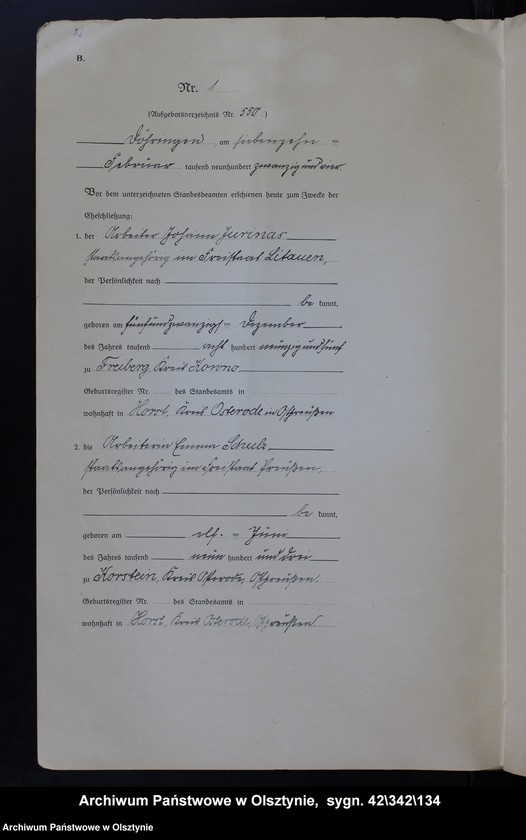 B.
Nr. 1
(Aufgebotsverzeichnis Nr. 550)
Döhringen, am siebenzehn =
Februar tausend neunhundert zwanzig und vier
Vor dem unterzeichneten Standesbeamten erschienen heute zum Zwecke der
Eheschließung:
1. der Arbeiter Johann Jurinas
staatsangehörig im Freistaat Litauen,
der Persönlichkeit nach
be kannt,
geboren am fünfundzwanzigs = Dezember
des Jahres tausend acht hundert neunzig und fünf
zu Freiberg, Kreis Kowno
Geburtsregister Nr. des Standesamts in
wohnhaft in Horst, Kreis Osterode in Ostpreußen
2. die Arbeiterin Emma Schulz,
staatsangehörig im Freistaat Preußen,
der Persönlichkeit nach
be kannt,
geboren am elf = Juni
des Jahres tausend neun hundert und drei
zu Korstein, Kreis Osterode, Ostpreußen.
Geburtsregister Nr. des Standesamts in
wohnhaft in Horst, Kreis Osterode, Ostpreußen.
Archiwum Państwowe w Olsztynie, sygn. 42\342\134
Archiwum Państwowe w Olsztynie